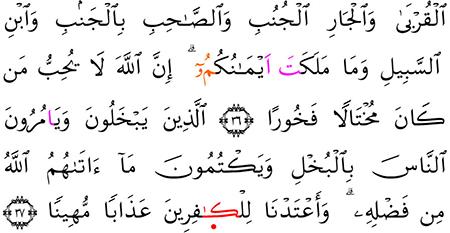 اَ۬لْقُرْب۪يٰ وَالْج۪ارِ الْجُنُبِ وَالصَّاحِبِ بِالْجَنۢبِ وَابْنِ
السَّبِيلِ وَمَا مَلَكَتَ اَيْمَٰنُكُمُۥٓۖ إِنَّ اللَّهَ لَا يُحِبُّ مَن
كَانَ مُخْتَالًا فَخُورًا ٣٦ الَّذِينَ يَبْخَلُونَ وَيَامُرُونَ
النَّاسَ بِالْبُخْلِ وَيَكْتُمُونَ مَآ ءَاتَىٰهُمُ اللَّهُ
مِن فَضْلِهِۦۖ وَأَعْتَدْنَا لِلْكٰ۪فِرِينَ عَذَابًا مُّهِينًا ٣٧